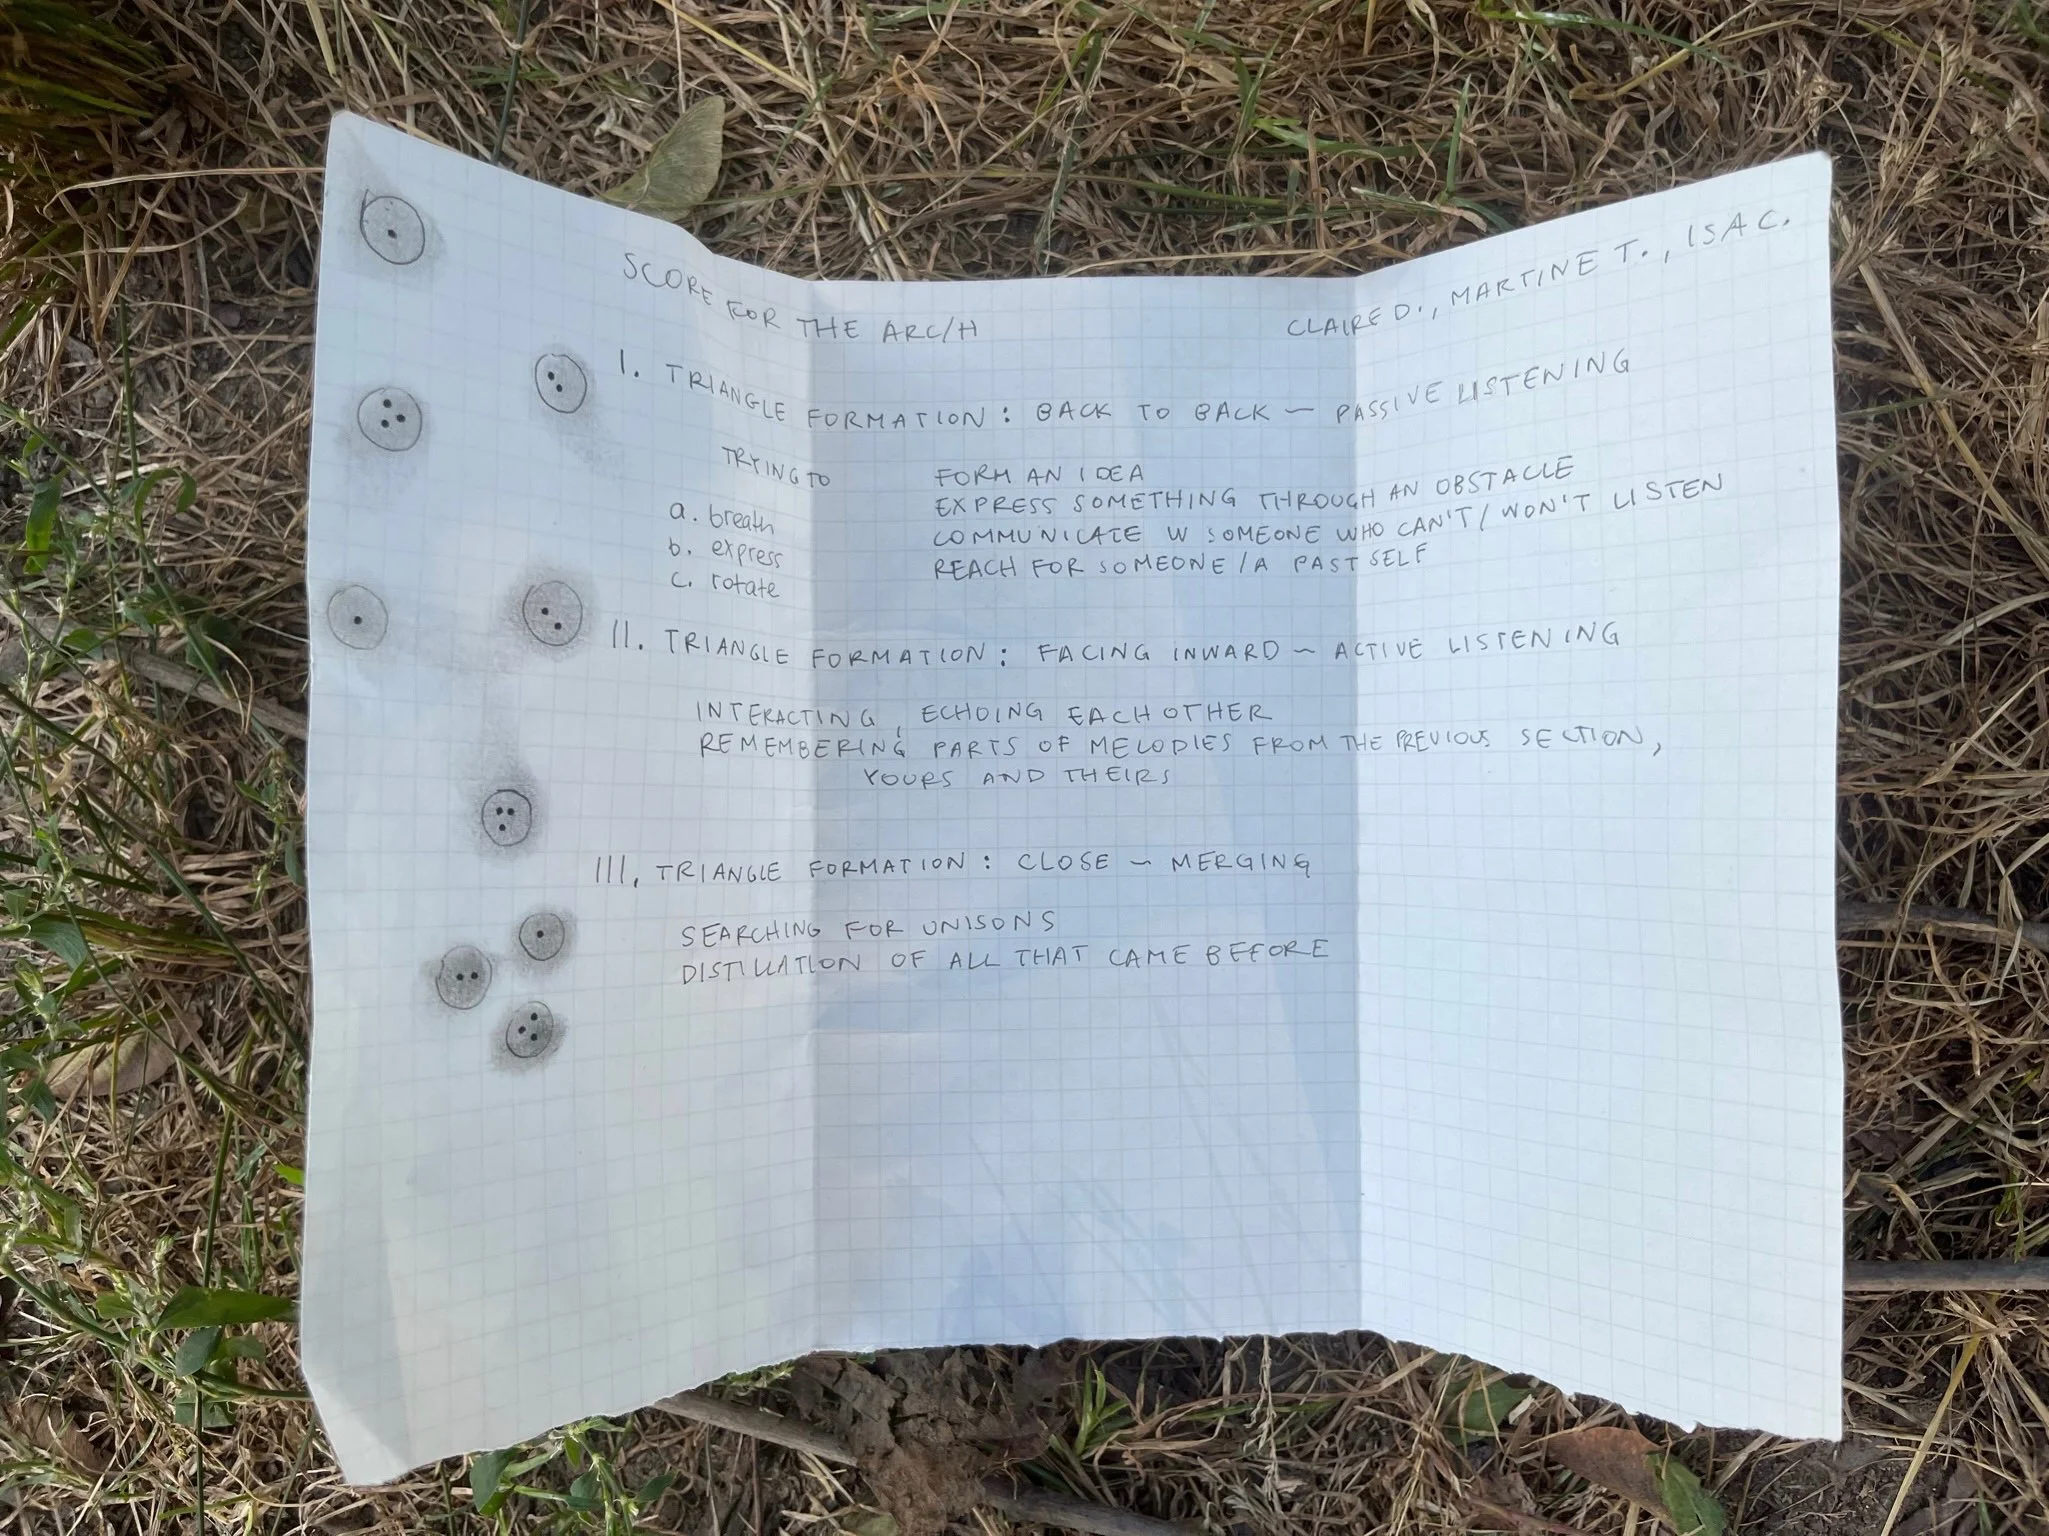 SCORE FOR THE ARC/H
CLAIRE D., MARTINE T., ISA C.
I. TRIANGLE FORMATION: BACK TO BACK – PASSIVE LISTENING
TRYING TO
a. breath
b. express
c. rotate
FORM AN IDEA
EXPRESS SOMETHING THROUGH AN OBSTACLE
COMMUNICATE W SOMEONE WHO CAN'T/WON'T LISTEN
REACH FOR SOMEONE/A PAST SELF
II. TRIANGLE FORMATION: FACING INWARD – ACTIVE LISTENING
INTERACTING, ECHOING EACHOTHER
REMEMBERING PARTS OF MELODIES FROM THE PREVIOUS SECTION,
YOURS AND THEIRS
III. TRIANGLE FORMATION: CLOSE – MERGING
SEARCHING FOR UNISONS
DISTILLATION OF ALL THAT CAME BEFORE